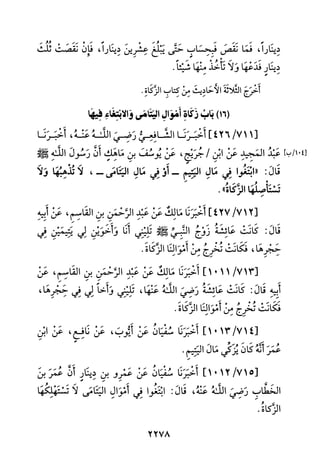 دِينَاراً، فَمَا نَقَصَ فَبِحِسَابٍ حَتَّى يَبْلُغَ عِشْرِينَ دِينَاراً، فَإِنْ نَقَصَتْ ثُلُثَ
دِينَارٍ فَدَعْهَا وَلَا تَأْخُذْ مِنْهَا شَيْئاً.
أَخْرَجَ الثَّلَاثَةَ الْأَحَادِيثَ مِنْ كِتَابِ الزَّكَاةِ.
(١٦) بَابُ زَكَاةِ أَمْوَالِ الْيَتَامَى وَالِابْتِغَاءِ فِيهَا
[٤٢٦/٧١١] أَخْبَرَنَا الشَّافِعِيُّ رَضِيَ اللَّهُ عَنْهُ، أَخْبَرَنَا
عَبْدُ الْمَجِيدِ عَنْ ابْنِ / جُرَيْجٍ، عَنْ يُوسُفَ بنِ مَاهِكَ أَنَّ رَسُولَ اللَّهِ ﷺ [١٠٤/ب]
قَالَ: «ابْتَغُوا فِي مَالِ الْيَتِيمِ ـ أَوْ فِي مَالِ الْيَتَامَى ـ، لَا تُذْهِبْهَا وَلَا
تَسْتَأْصِلْهَا الزَّكَاةُ».
[٤٢٧/٧١٢] أَخْبَرَنَا مَالِكٌ عَنْ عَبْدِ الرَّحْمَنِ بنِ الْقَاسِمِ، عَنْ أَبِيهِ
قَالَ: كَانَتْ عَائِشَةُ زَوْجُ النَّبِيِّ ﷺ تَلِينِي أَنَا وَأَخَوَيْنِ لِي يَتِيمَيْنِ فِي
حِجْرِهَا، فَكَانَتْ تُخْرِجُ مِنْ أَمْوَالِنَا الزَّكَاةَ.
[١٠١١/٧١٣] أَخْبَرَنَا مَالِكٌ عَنْ عَبْدِ الرَّحْمَنِ بنِ الْقَاسِمِ، عَنْ
أَبِيهِ قَالَ: كَانَتْ عَائِشَةُ رَضِيَ اللَّهُ عَنْهَا، تَلِينِي وَأَخاً لِي فِي حِجْرِهَا،
فَكَانَتْ تُخْرِجُ مِنْ أَمْوَالِنَا الزَّكَاةَ.
[١٠١٣/٧١٤] أَخْبَرَنَا سُفْيَانُ عَنْ أَيُّوبَ، عَنْ نَافِعٍ، عَنْ ابْنِ
عُمَرَ أَنَّهُ كَانَ يُزَكِّي مَالَ الْيَتِيمِ.
[١٠١٢/٧١٥] أَخْبَرَنَا سُفْيَانُ عَنْ عَمْرِو بنِ دِينَارٍ أَنَّ عُمَرَ بنَ
الْخَطَّابِ رَضِيَ اللَّهُ عَنْهُ، قَالَ: ابْتَغُوا فِي أَمْوَالِ الْيَتَامَى لَا تَسْتَهْلِكُهَا
الزَّكَاةُ.
٢٢٧٨